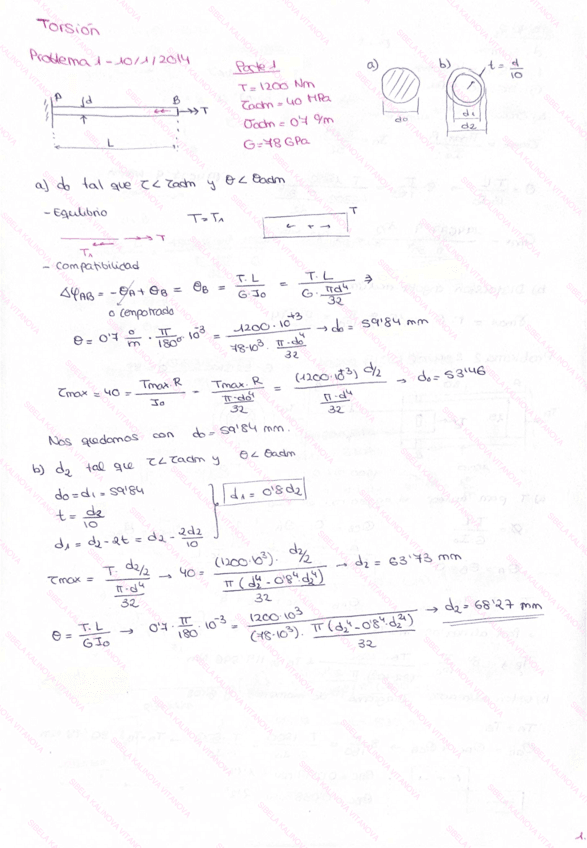 Torsión
Problema 1 - 10/1/2014
Parte 1
T = 1200 Nm
τadm = 40 MPa
θadm = 0'7 º/m
G = 78 GPa
A d B T
L
a) d₀
b) t = d/10
d₁
d₂
a) d₀ tal que τ < τadm y θ < θadm
- Equilibrio T = T₁
T
T₁ T
- Compatibilidad
Δφ_AB = -θ_A + θ_B = θ_B = T·L/(G·J₀) = T·L/(G·πd⁴/32) ⇒
0 (empotrado
θ = 0'7 º/m · π/180º · 10⁻³ = 1200·10⁺³/(78·10³ · π·d₀⁴/32) → d₀ = 59'84 mm
τmax = 40 = Tmax·R/J₀ = Tmax·R/(π·d₀⁴/32) = (1200·10³) d/2/(π·d⁴/32) → d₀ = 53'46
Nos quedamos con d₀ = 59'84 mm.
b) d₂ tal que τ < τadm y θ < θadm
d₀ = d₁ = 59'84
t = d₂/10
d₁ = d₂ - 2t = d₂ - 2d₂/10
d₁ = 0'8 d₂
τmax = T·d₂/2/(π·d⁴/32) → 40 = (1200·10³)·d₂/2/(π(d₂⁴ - 0'8⁴d₂⁴)/32) → d₂ = 63'73 mm
θ = T·L/(G J₀) → 0'7 · π/180 · 10⁻³ = 1200·10³/((78·10³) · π(d₂⁴ - 0'8⁴·d₂⁴)/32) → d₂ = 68'27 mm
1.
SIBILA KALINOVA VITANOVA